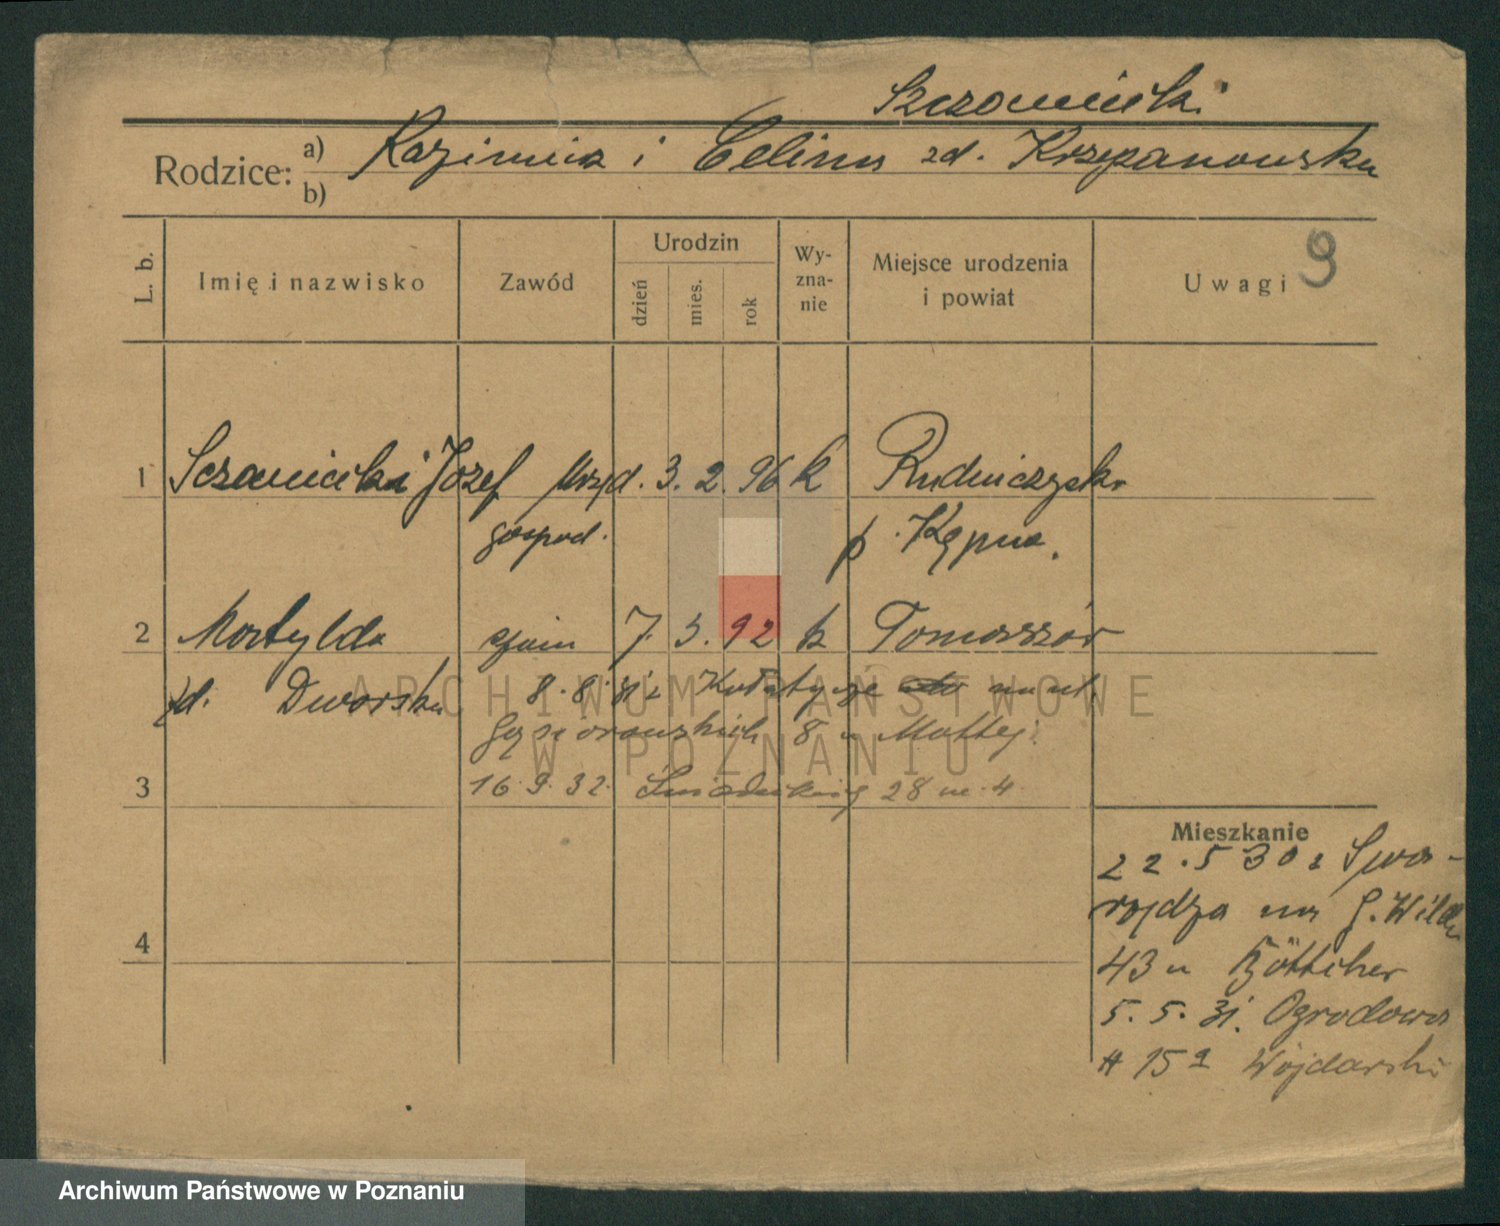 Szczaniecki
Rodzice: a) Kazimierz i Celina zd. Krzyżanowska
b)
L. b. Imię i nazwisko Zawód Urodzin dzień mies. rok Wy-zna-nie Miejsce urodzenia i powiat Uwagi 9
1 Sczaniecki Józef Urzęd. 3. 2. 96 k Rudniczysko
gospod. p. Kępno.
2 Matylda 7. 3. 92 k Tomaszów
zd. Dworska 8. 8. 31 z
Gąsiorowskich 8 u Mattej.
3 16. 9. 32. Śniadeckich 28 m. 4
Mieszkanie
22. 5 30 z Swa-
rojdza na G. Wilda
43 u Böttcher
4
5. 5. 31. Ogrodowa
# 15a Wojdarski
ARCHIWUM PAŃSTWOWE
W POZNANIU
Archiwum Państwowe w Poznaniu